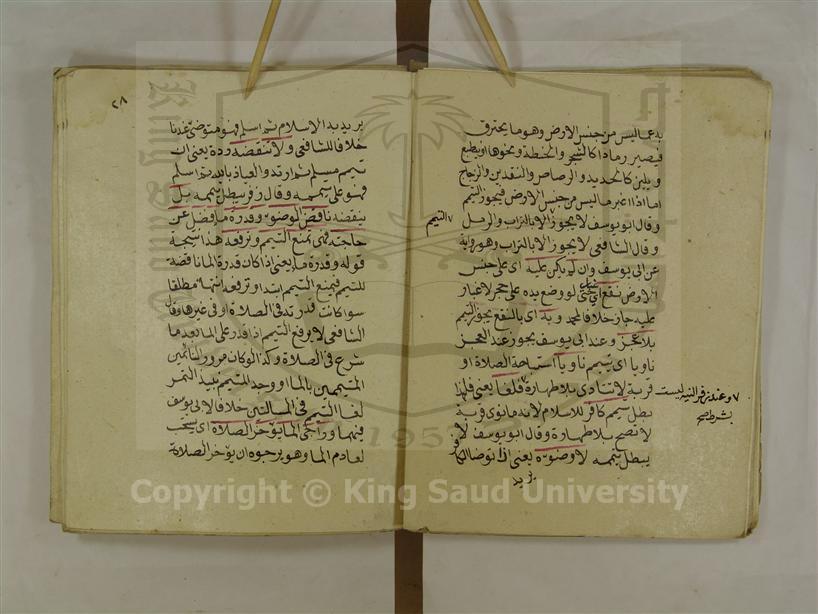 بد عما ليس من جنس الارض وهو ما يحترق
فيصير رمادا كالشجر والحنطة ونحوها او ينطبع
ويلين كالحديد والرصاص والنقدين والزجاج
اما اذا اغبر ما ليس من جنس الارض فيجوز التيمم
وقال ابو يوسف لا يجوز الا بالتراب والرمل
٧ التيمم
وقال الشافعي لا يجوز الا بالتراب وهو رواية
عن ابي يوسف وان لم يكن عليه اي على جنس
الارض نقع اي غبار حتى لو وضع يده على حجر لا غبار
عليه جاز خلافا لمحمد وبه اي بالنقع يجوز التيمم
بلا عجز وعند ابي يوسف يجوز عند العجز
ناويا اي تيمم ناويا استباحة الصلاة او
قربة لا تتادى بلا طهارة ٧ فلغا يعني فلهذا
٧ وعند زفر النية ليست
بشرط صح
بطل تيمم كافر للاسلام لانه ما نوى قربة
لا تصح بلا طهارة وقال ابو يوسف لا
يبطل تيممه لا وضوءه يعني اذا توضا الكافر
يريد
٢٨
يريد به الاسلام ثم اسلم فهو متوضئ عندنا
خلافا للشافعي ولا تنقضه ردة يعني ان
تيمم مسلم ثم ارتد والعياذ بالله ثم اسلم
فهو على تيممه وقال زفر يبطل تيممه بل
ينقضه ناقض الوضوء وقدرة ما فضل عن
حاجته فهي تمنع التيمم وترفعه هذا نتيجة
قوله وقدرة ما يعني اذا كان قدرة الما ناقضة
للتيمم فيمنع التيمم ابتدا وترفعه انتها مطلقا
سوا كانت قدرته في الصلاة او في غيرها وقال
الشافعي لا يرفع التيمم اذا قدر على الما بعد ما
شرع في الصلاة وكذا لو كان مرور النائمين
المتيممين بالما او وجد المتيمم نبيذ التمر
لغا التيمم في المسالتين خلافا لابي يوسف
فيهما وراجي الما يؤخر الصلاة اي يستحب
لعادم الما وهو يرجوه ان يؤخر الصلاة
Copyright © King Saud University
1957